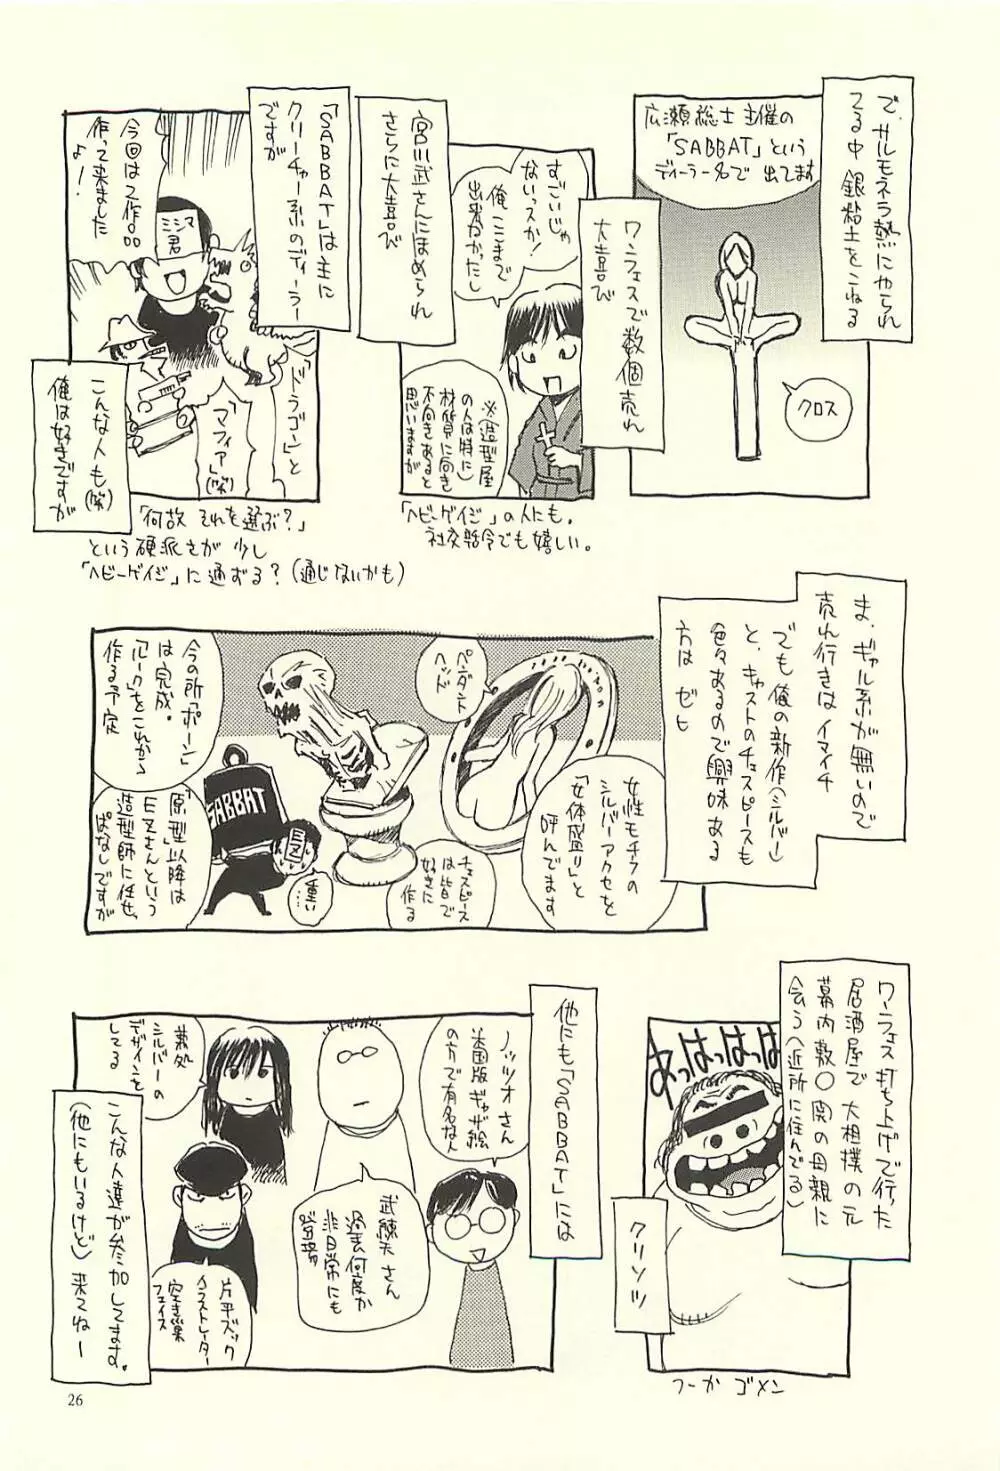 で、サルモネラ熱にやられ
てる中 銀粘土をこねる
広瀬総士 主催の
「SABBAT」という
ディーラー名で 出てます
クロス
ワンフェスで数個売れ
大喜び
すごいじゃ
ないっスか!
俺ここまで
出来なかったし
※(造型屋
の人は特に)
材質に向き
不向きあると
思いますが
「ヘビーゲイジ」の人にも。
社交辞令でも嬉しい。
宮川武さんにほめられ
さらに大喜び
「SABBAT」は主に
クリーチャー系のディーラー
ですが
今回は2作品
作って来ました
よ!
ミシマ
君
「ドラゴン」と
「マフィア」(笑)
こんな人も(笑)
俺は好きですが
「何故 それを選ぶ?」
という硬派さが 少し
「ヘビーゲイジ」に通ずる?(通じないかも)
ま、ギャル系が無いので
売れ行きはイマイチ
でも俺の新作(シルバー)
と、キャストのチェスピースも
色々あるので興味ある
方は ゼヒ
ペンダント
ヘッド
女性モチーフの
シルバーアクセを
「女体盛り」と
呼んでます
チェスピース
は皆で
好きに
作る
今の所「ポーン」
は完成。
「ルーク」をこれから
作る予定
SABBAT
重い…
「原型」以降は
EZさんという
造型師に任せっ
ぱなしですが
ワンフェス打ち上げで行った
居酒屋で 大相撲の元
幕内 敷○関の母親に
会う(近所に住んでる)
あっはっはっはっ
クリソツ
つーか ゴメン
他にも「SABBAT」には
ノッツオさん
米国版ギャザ絵
の方で有名な人
武藤天さん
過去何度か
非日常にも
登場
兼処
シルバーの
デザインを
してる
片平ズック
イラストレーター
空き巣
フェイス
こんな人達が参加してます。
(他にもいるけど) 来てねー
26